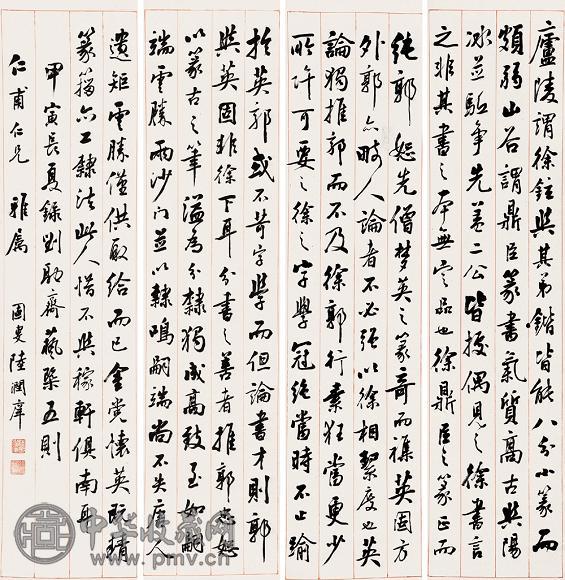 廬陵謂徐鉉與其弟鍇皆能八分小篆而
頗弱山谷謂鼎臣篆書氣質高古與陽
冰並驅爭先蓋二公皆據偶見之徐書言
之非其書之本無定品也徐鼎臣之篆正而
純郭恕先僧夢英之篆奇而雜英固方
外郭亦畸人論者不必強以徐相絜度也英
論獨推郭而不及徐郭行素狂當更少
所許可要之徐之字學冠絕當時不止逾
於英郭或不苛字學而但論書才則郭
與英固非徐下耳分書之善者推郭忠恕
以篆古之筆溢為分隸獨成高致至如嗣
端雲勝兩沙門並以隸鳴嗣端尚不失唐人
遺矩雲勝僅供取給而已金党懷英既精
篆籀亦工隸法此人惜不與稼軒俱南耳
甲寅長夏錄劉融齋藝槩五則
仁甫仁兄 雅屬 固叟陸潤庠
中华收藏网
www.pmv.cn